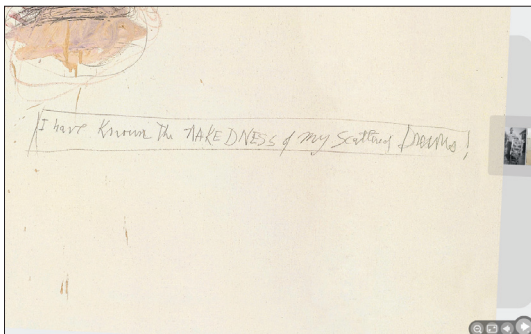 I have Known The NAKEDNESS of my Scattered Dreams!